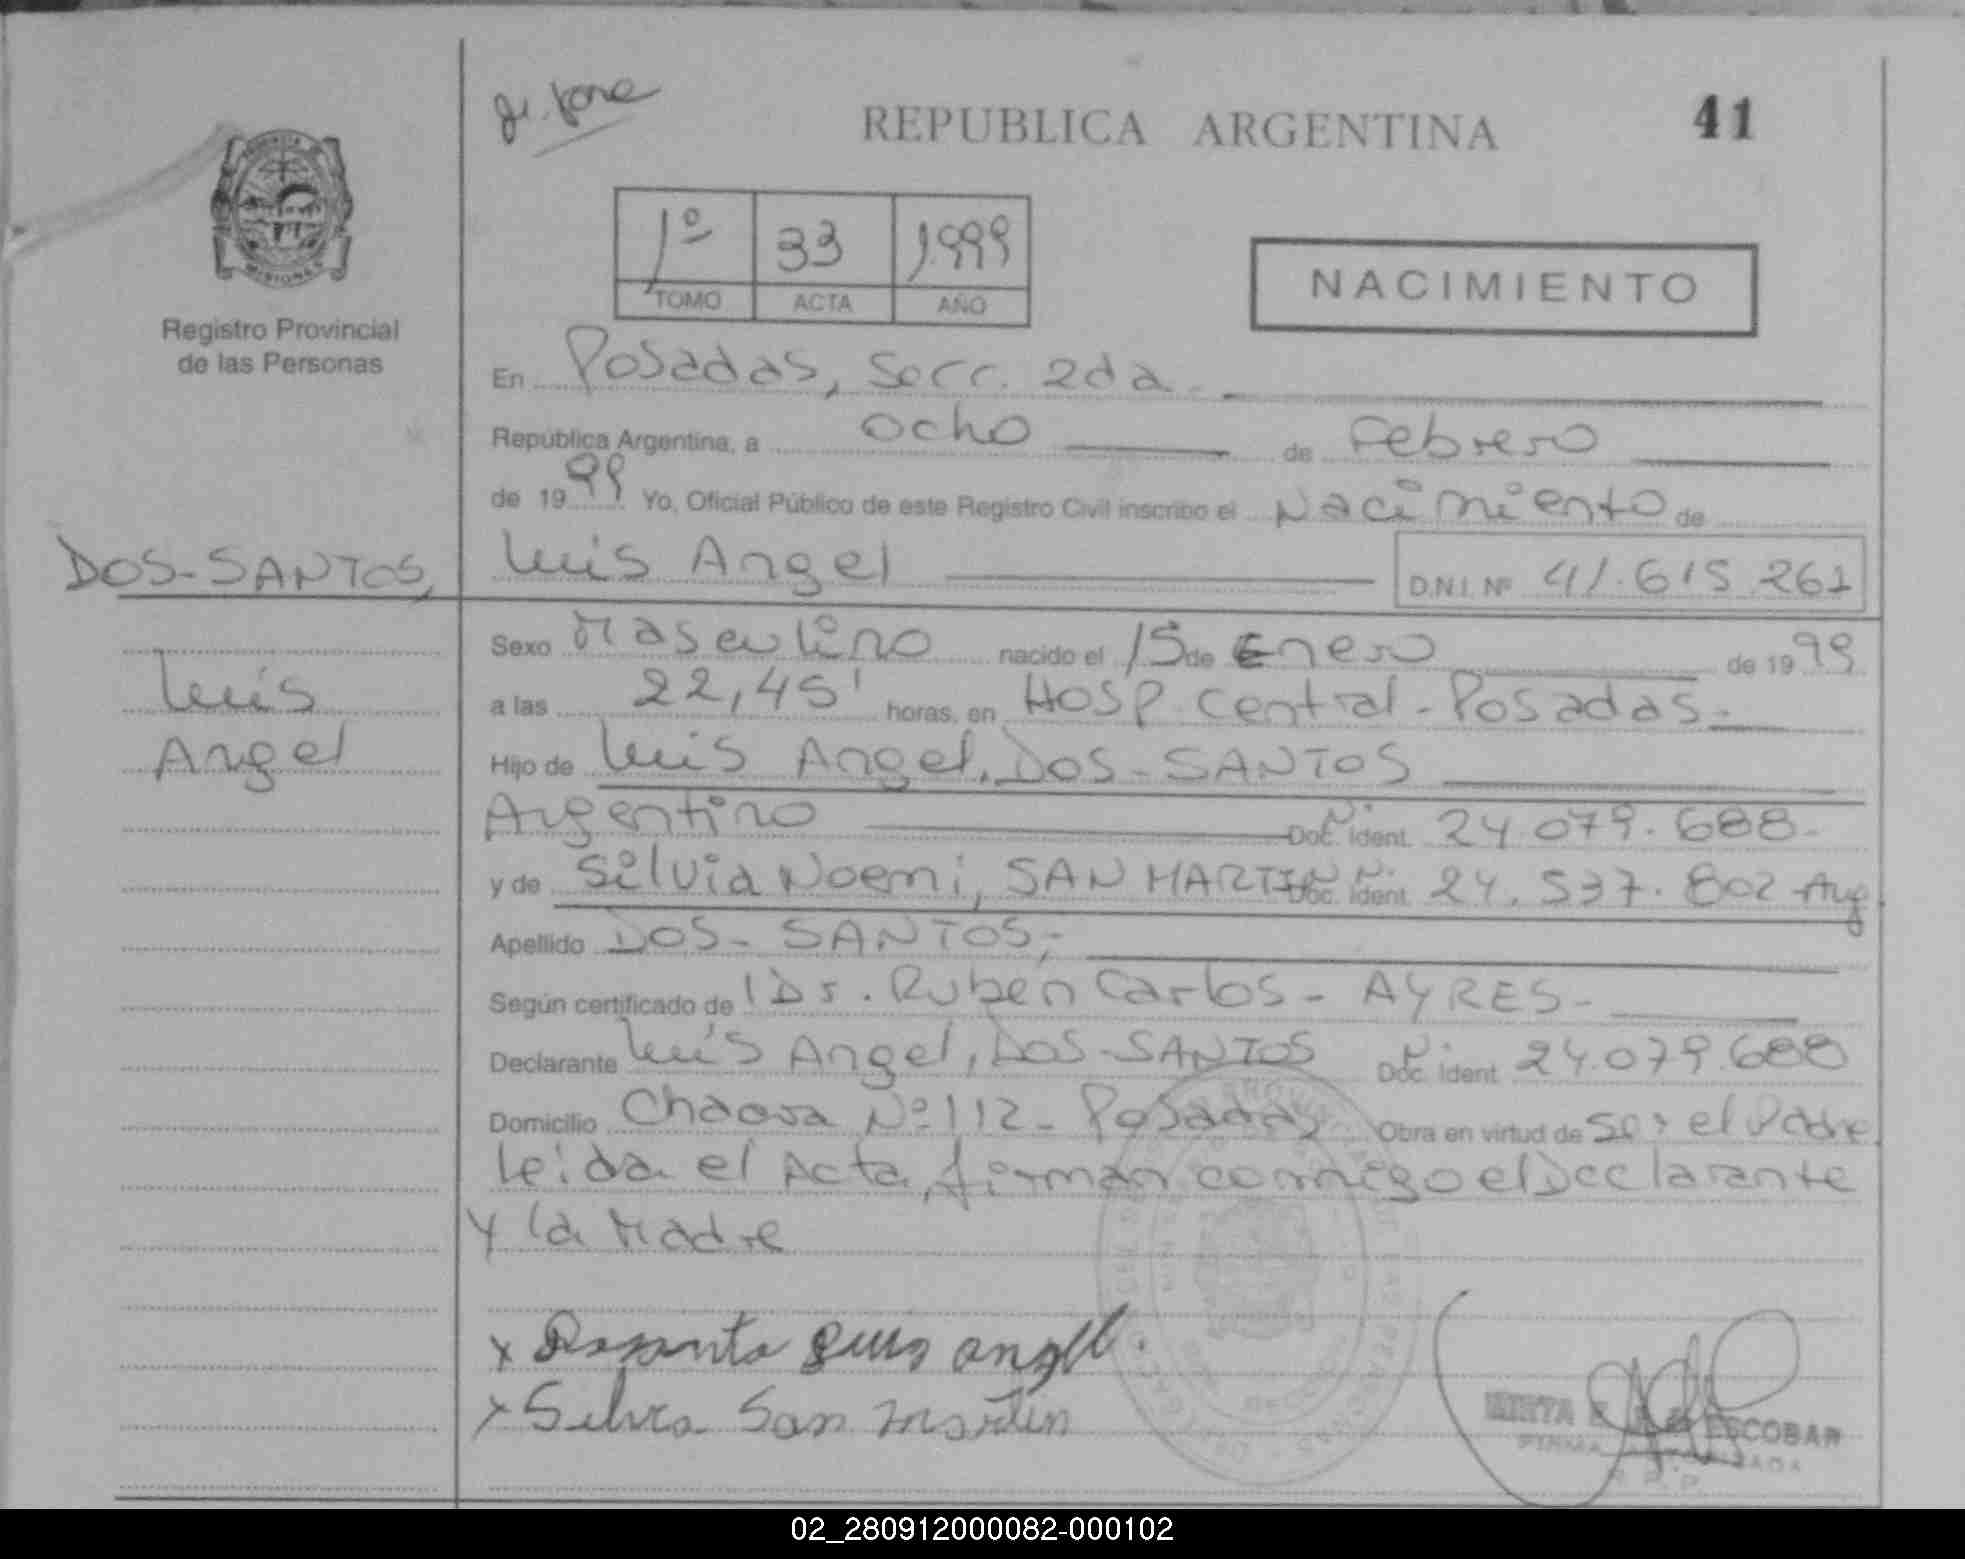 REPUBLICA ARGENTINA
41
1º 33 1.999
TOMO ACTA AÑO
NACIMIENTO
MISIONES
Registro Provincial
de las Personas
En Posadas, Secc. 2da.
República Argentina, a ocho de Febrero
de 1999 Yo, Oficial Público de este Registro Civil inscribo el Nacimiento de
DOS-SANTOS, Luis Angel D.N.I. Nº 41.615.261
Luis
Angel
Sexo Masculino nacido el 15 de Enero de 1999
a las 22,45' horas, en Hosp. Central - Posadas -
Hijo de Luis Angel, DOS-SANTOS
Argentino Doc. Ident. 24.079.688-
y de Silvia Noemi, SAN MARTIN Doc. Ident. 24.537.802 Arg
Apellido DOS- SANTOS,-
Según certificado de Dr. Ruben Carlos - AYRES -
Declarante Luis Angel, DOS-SANTOS Doc. Ident. 24.079.688
Domicilio Chacra Nº 112 - Posadas Obra en virtud de Ser el Padre
Leida el Acta, firman conmigo el Declarante
y la Madre
x Dosanto Luis angel.
x Silvia San Martin
ESCOBAR
FIRMA
R.P.P.
02_280912000082-000102